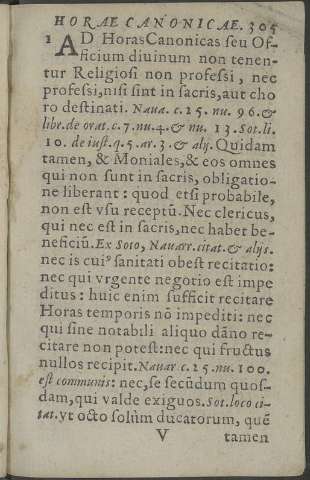 HORAE CANONICAE. 305
1 AD Horas Canonicas seu Of-
ficium diuinum non tenen-
tur Religiosi non professi, nec
professi, nisi sint in sacris, aut cho
ro destinati. Naua. c. 25. nu. 96. &
libr. de orat. c. 7. nu. 4. & nu. 13. Sot. li.
10. de iust. q. 5. ar. 3. & alij. Quidam
tamen, & Moniales, & eos omnes
qui non sunt in sacris, obligatio-
ne liberant: quod etsi probabile,
non est vsu receptũ. Nec clericus,
qui nec est in sacris, nec habet be-
neficiũ. Ex Soto, Nauarr. citat. & alijs.
nec is cuiꝰ sanitati obest recitatio:
nec qui vrgente negotio est impe
ditus: huic enim sufficit recitare
Horas temporis nõ impediti: nec
qui sine notabili aliquo dãno re-
citare non potest: nec qui fructus
nullos recipit. Nauar c. 25. nu. 100.
est communis: nec, se secũdum quos-
dam, qui valde exiguos. Sot. loco ci-
tat. vt octo solùm ducatorum, quẽ
V tamen